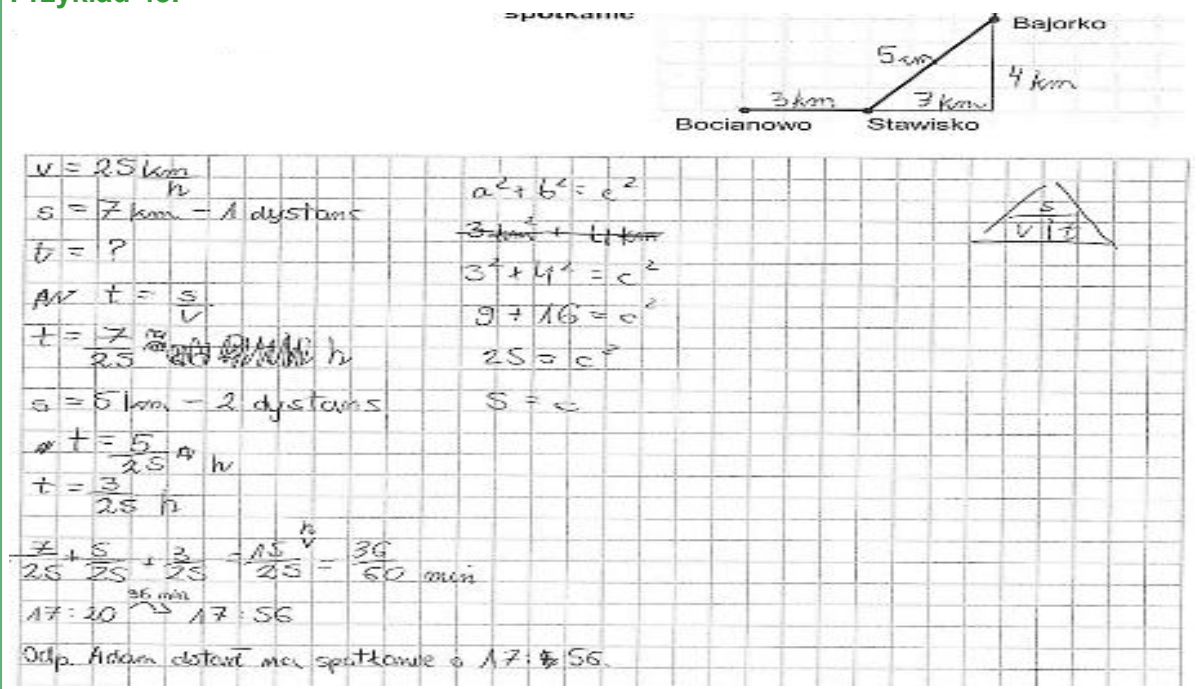 Przykład
spotkanie
Bajorko
5 km
4 km
3 km
7 km
Bocianowo
Stawisko
v = 25 km/h
s = 7 km - 1 dystans
t = ?
t = s/v
t = 7/25 ≈ h
s = 5 km - 2 dystans
t = 5/25 h
t = 3/25 h
7/25 + 5/25 + 3/25 = 15/25 h = 36/60 min
36 min
17:20 17:56
Odp. Adam dotarł na spotkanie o 17:56.
a² + b² = c²
3 km² + 4 km
3² + 4² = c²
9 + 16 = c²
25 = c²
5 = c
s
v t